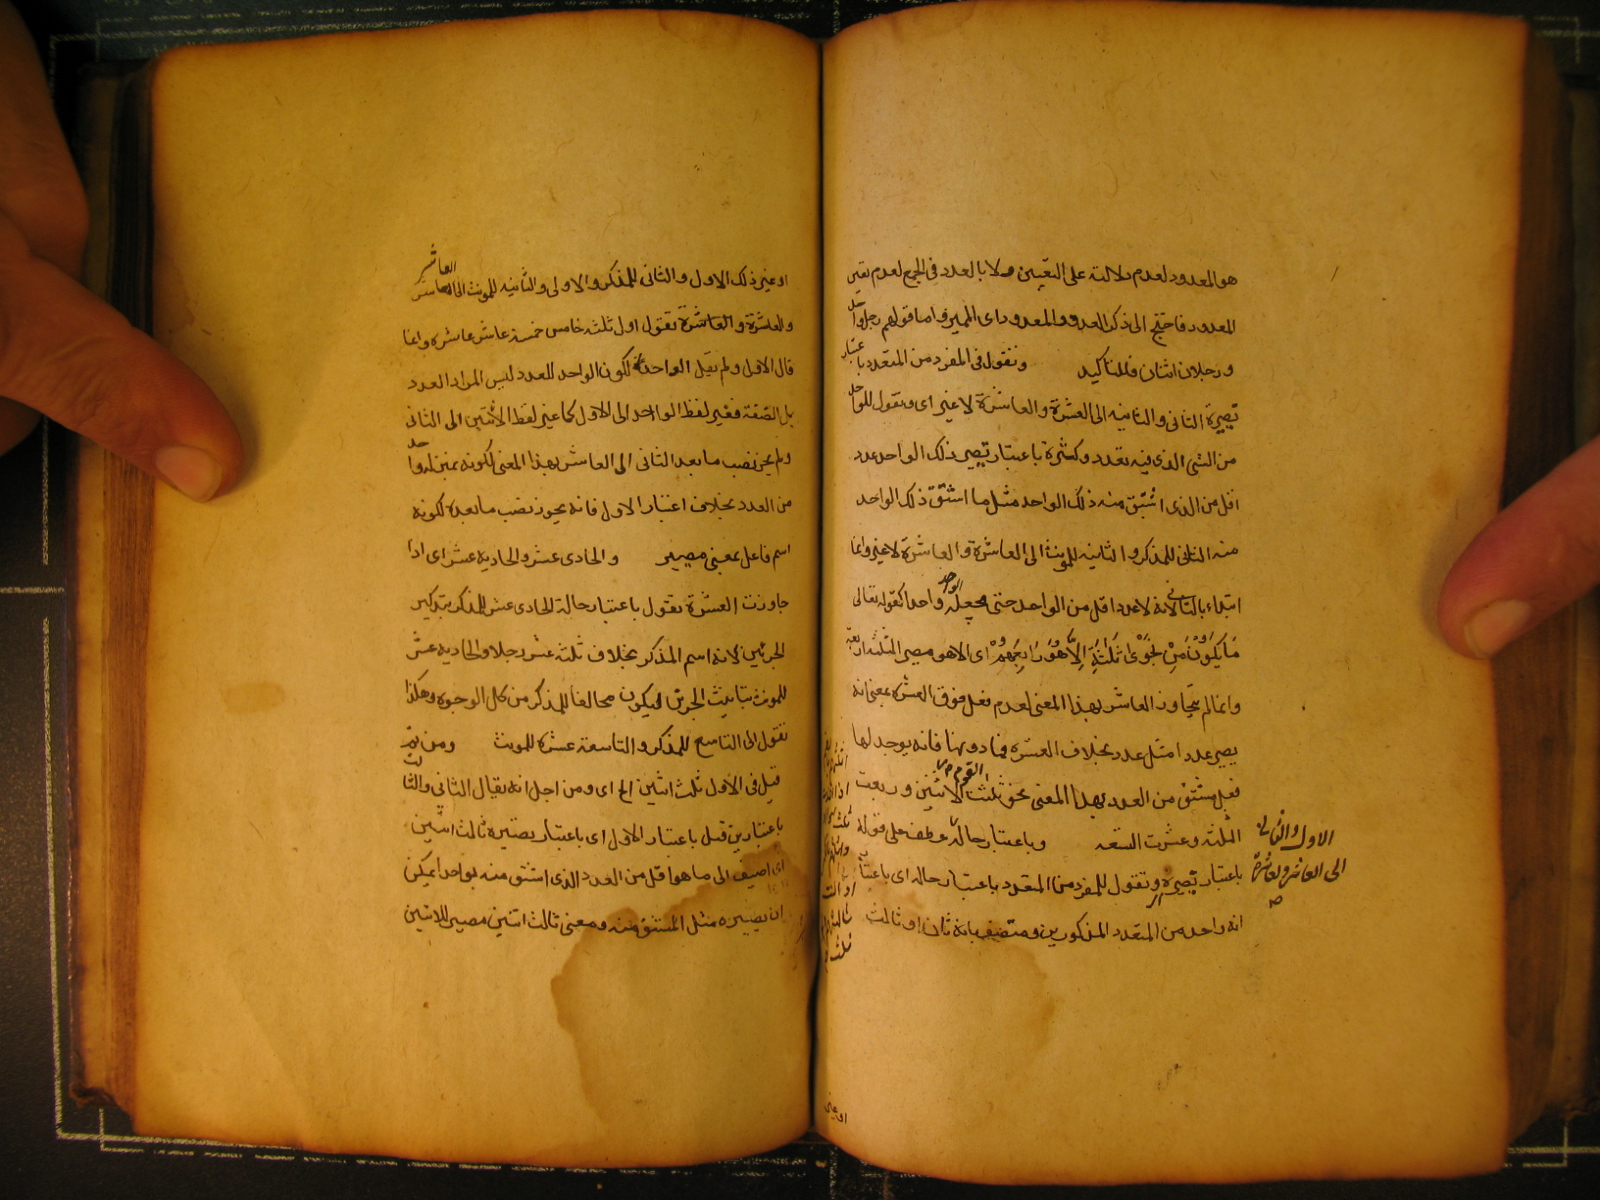 هو المعدود لعدم دلالته على التعيين ولا بالعدد في الجمع لعدم تعين
المعدود فاحتيج الى ذكر العدد والمعدود اى المميز واما قولهم رجل واحد
ورجلان اثنان فللتاكيد وتقول في المفرد من المتعدد باعتبار
تصييره الثانى والثانيه الى العشرة والعاشرة لا غير اى وتقول للواحد
من الشئ الذى فيه تعدد وكثرة باعتبار تصيير ذلك الواحد عدد
اقل من الذى اشتق منه ذلك الواحد مثل ما اشتق ذلك الواحد
منه الثانى للمذكر والثانيه للمونث الى العاشرة والعاشرة لا غير وانما
ابتداء بالثانى لانه لا عدد اقل من الواحد حتى يجعله الواحد واحدا كقوله تعالى
مَا يَكُونُ مِنْ نَجْوَى ثَلٰثَةٍ اِلَّا هُوَ رَابِعُهُمْ اى الا هو مصير الثلثة اربعة
وانما لم يتجاوز العاشر بهذا المعنى لعدم فعل فوق العشرة بمعنى انه
يصير عددا مثل عدد بخلاف العشره فما دونها فانه يوجد لها
فعل مشتق من العدد بهذا المعنى نحو ثلثت القوم الاثنين وربعت
الثلثه وعشرت التسعه وباعتبار حاله عطف على قوله
باعتبار تصييره وتقول للمفرد من المتعدد باعتبار حاله اى باعتبار
انه واحد من المتعدد المذكورين ومتصف بانه ثان او ثالث
الاول والثانى
الى العاشر والعاشرة
صح
او غير
او غير ذلك الاول والثانى للمذكر والاولى والثانيه للمونث الى العاشر
والعاشرة والعاشرة تقول اول ثلثه خامس خمسة عاشر عاشره وانما
قال الاول ولم يقل الواحد لكون الواحد للعدد ليس المراد العدد
بل الصفة فغير لفظ الواحد الى الاول كما غير لفظ الاثنين الى الثانى
ولم يجز نصب ما بعد الثانى الى العاشر بهذا المعنى لكونه بمنزلة واحد
من العدد بخلاف اعتبار الاول فانه يجوز نصب ما بعده لكونه
اسم فاعل بمعنى مصيير والحادى عشر والحاديه عشر اى اذا
جاوزت العشرة تقول باعتبار حالة الحادى عشر للمذكر بتذكير
الجزئين لانه اسم المذكر بخلاف ثلثه عشر رجلا والحاديه عشر
للمونث بتانيث الجزئين ليكون مخالفا للمذكر من كل الوجوه وهكذا
تقول الى التاسع للمذكر والتاسعة عشرة للمونث ومن ثم
قيل في الاول ثلث اثنين الخ اى ومن اجل انه يقال الثانى والثالث
باعتبارين قيل باعتبار الاول اى باعتبار تصييره ثالث اثنين
اى اضيف الى ما هو اقل من العدد الذى اشتق منه بواحد ليمكن
ان يصييره مثل المشتق منه ومعنى ثالث اثنين مصيير للاثنين